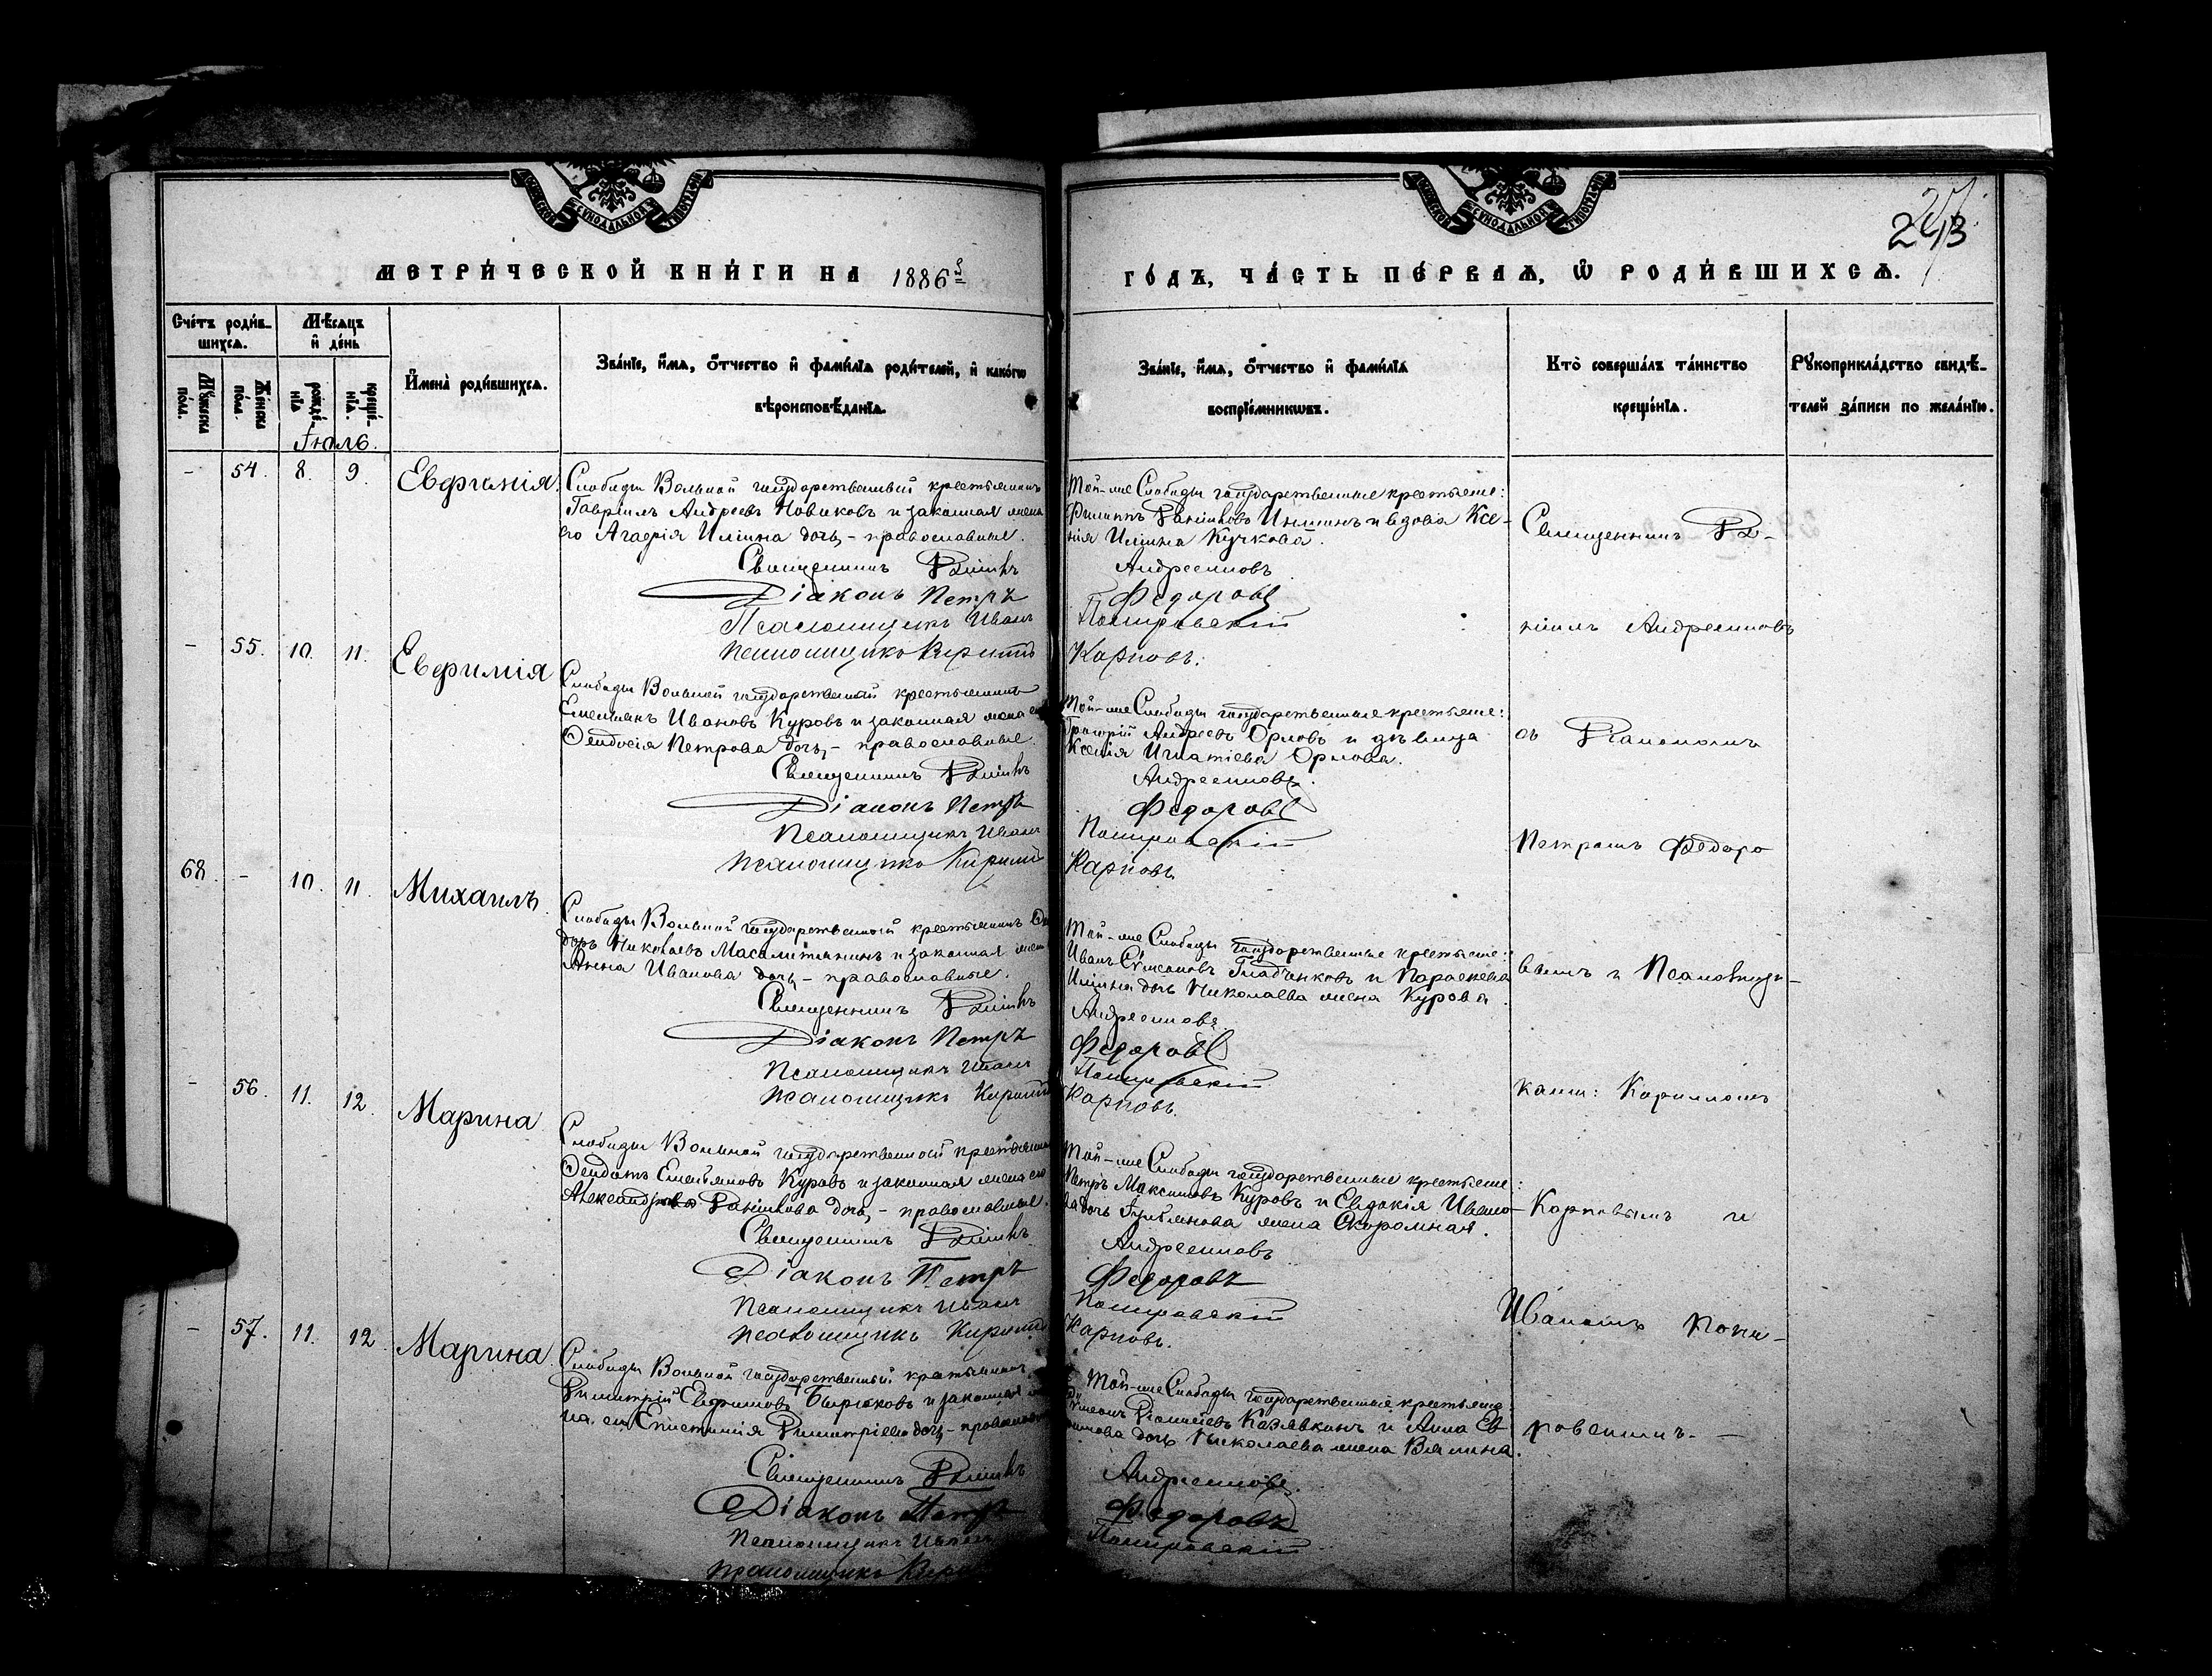 СѶНОДАЛЬНОЙ
СѶНОДАЛЬНОЙ
243
МЕТРИ́ЧЕСКОЙ КНИ́ГИ НА 1886й
ГО́ДЪ, ЧА́СТЬ ПЕ́РВАѦ, Ѽ РОДИ́ВШИХСѦ.
Сче́тъ роди́в-
шихсѧ.
Мѣ́сѧцъ
и҆ де́нь
Мꙋ́жеска
по́ла.
Же́нска
по́ла.
рожде́-
нїѧ
креще́-
нїѧ.
И҆мена̀ роди́вшихсѧ.
Зва́нїе, и҆́мѧ, ѻ҆́тчество и҆ фами́лїѧ роди́телей, и҆ како́гѡ
вѣроисповѣ́данїѧ.
Зва́нїе, и҆́мѧ, ѻ҆́тчество и҆ фами́лїѧ
воспрїе́мникѡвъ.
Кто̀ соверша́лъ та́инство
креще́нїѧ.
Рꙋкоприкла́дство свидѣ́-
телей за́писи по жела́нїю.
Іюль.
- 54. 8. 9.
Слободы Вольной государственный крестьянинъ
Гавріилъ Андреевъ Новиковъ и законная жена
его Агафія Иліина дочь, - православные.
Священникъ
Діаконъ Петръ
Псаломщикъ Иванъ
Псаломщикъ Кириллъ
Той-же Слободы государственные крестьяне:
Филиппъ и вдова Ксе-
нія Иліина Кучкова.
Андреенковъ
Федоровъ
Покировскій
Карповъ.
Священникъ
ніилъ Андреенковъ
- 55. 10. 11.
Евфимія
Слободы Вольной государственный крестьянинъ
Емельянъ Ивановъ Куровъ и законная жена его
Ѳеодосія Петрова дочь, - православные.
Священникъ
Діаконъ Петръ
Псаломщикъ Иванъ
Псаломщикъ Кириллъ
Той-же Слободы государственные крестьяне:
Григорій Андреевъ Орловъ и дѣвица
Ксенія Игнатіева Орлова.
Андреенковъ.
Федоровъ
Покировскій
Карповъ
съ Діакономъ
Петромъ Федоро
68. - 10. 11.
Михаилъ
Слободы Вольной государственный крестьянинъ Ѳео
доръ Николаевъ Масалитинъ и законная жена
Анна Иванова дочь, - православные.
Священникъ
Діаконъ Петръ
Псаломщикъ Иванъ
Псаломщикъ Кириллъ
Той-же Слободы государственные крестьяне:
Иванъ Гладченковъ и Параскева
Иліина дочь Николаева жена Курова.
Андреенковъ
Федоровъ
Покировскій
Карповъ.
вымъ и Псаломщи-
ками: Кирилломъ
- 56. 11. 12.
Марина
Слободы Вольной государственный крестьянинъ
Ѳеодотъ Емельяновъ Куровъ и законная жена его
Александра дочь, - православные.
Священникъ
Діаконъ Петръ
Псаломщикъ Иванъ
Псаломщикъ Кириллъ
Той-же Слободы государственные крестьяне:
Петръ Максимовъ Куровъ и Евдокія Ивано-
ва дочь жена Скоромная.
Андреенковъ
Федоровъ
Покировскій
Карповъ.
Карповымъ и
Иваномъ Поки-
- 57. 11. 12.
Марина
Слободы Вольной государственный крестьянинъ
Димитрій Евфимовъ Бирюковъ и законная же
на его Епистимія Димитріева дочь, - православные
Священникъ
Діаконъ Петръ
Псаломщикъ Иванъ
Псаломщикъ
Той-же Слободы государственные крестьяне:
Козявкинъ и Анна Ев
дочь Николаева жена Вялина.
Андреенковъ.
Федоровъ
Покировскій
ровскимъ. -